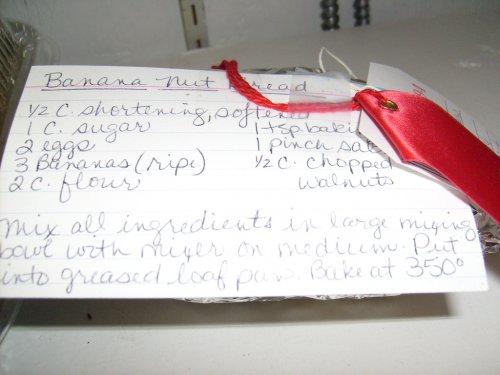 Banana Nut Bread
1/2 C. shortening, softened
1 C. sugar
2 eggs
3 Bananas (ripe)
2 C. flour
1 tsp baki
1 pinch sal
1/2 C. chopped
walnuts
Mix all ingredients in large mixing
bowl with mixer on medium. Put
into greased loaf pan. Bake at 350°